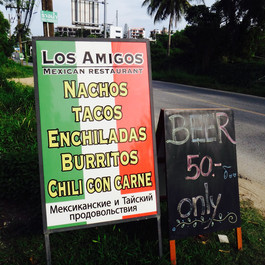 Los Amigos
Mexican Restaurant
Nachos
Tacos
Enchiladas
Burritos
Chili con carne
Мексиканские и Тайский
продовольствия
BEER
50.-
only